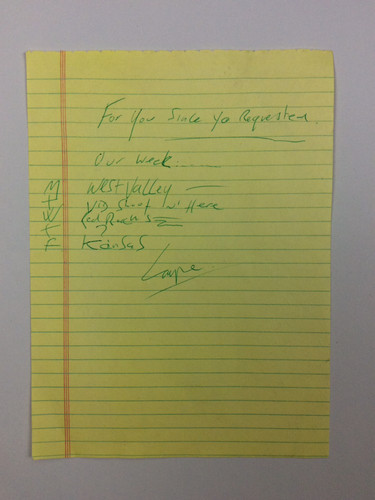 For You Since Yo Requested.
Our week.......
M West Valley —
T Vid Shoot w/ Here
W Red Rocks
T ?
F Kansas
Layne